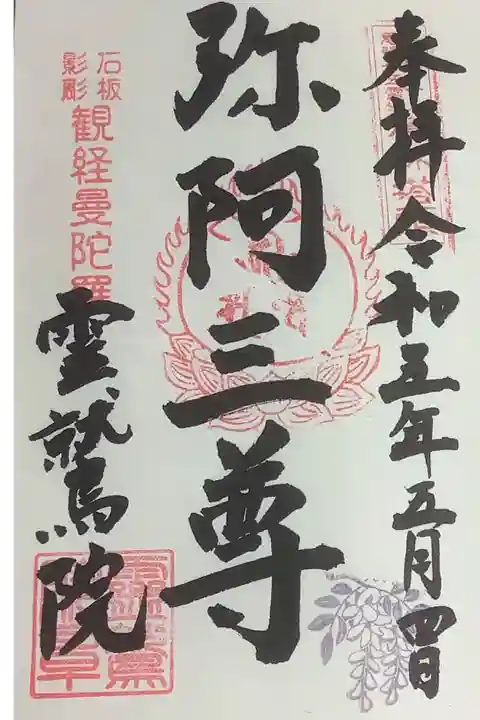 奉拝令和五年五月四日
弥阿三尊
石板
影彫
観経曼陀羅
霊鷲院